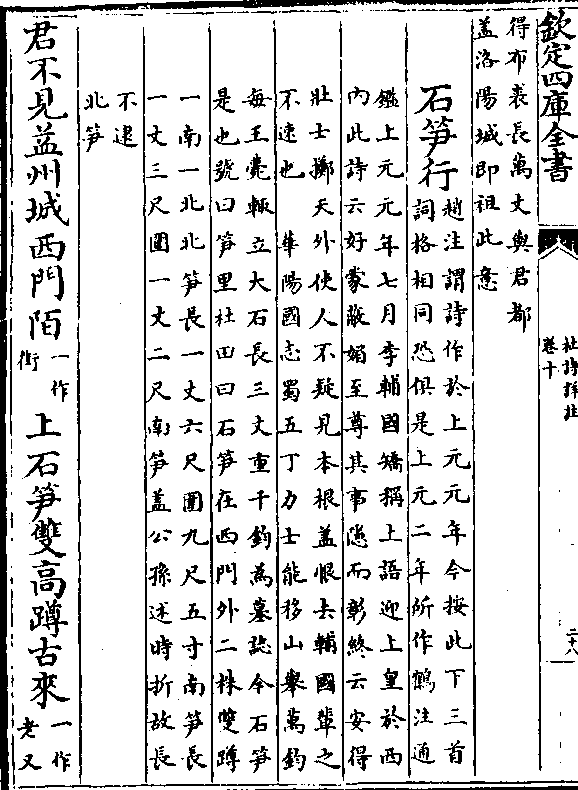 欽定四庫全書
杜詩詳註
卷十
二十八
得布裘長萬丈與君都
蓋洛陽城即祖此意
石笋行趙注謂詩作於上元元年今按此下三首
詞格相同恐俱是上元二年所作鶴注通
鑑上元元年七月李輔國矯稱上語迎上皇於西
内此詩云好蒙蔽媚至尊其事隱而彰終云安得
壯士擲天外使人不疑見本根蓋恨去輔國輩之
不速也 華陽國志蜀五丁力士能移山舉萬鈞
每王薨輒立大石長三丈重千鈞為墓誌今石笋
是也號曰笋里杜田曰石笋在西門外二株雙蹲
一南一北北笋長一丈六尺圍九尺五寸南笋長
一丈三尺圍一丈二尺南笋蓋公孫述時折故長
不逮
北笋
君不見益州城西門陌一作街上石笋雙高蹲古來一作老又